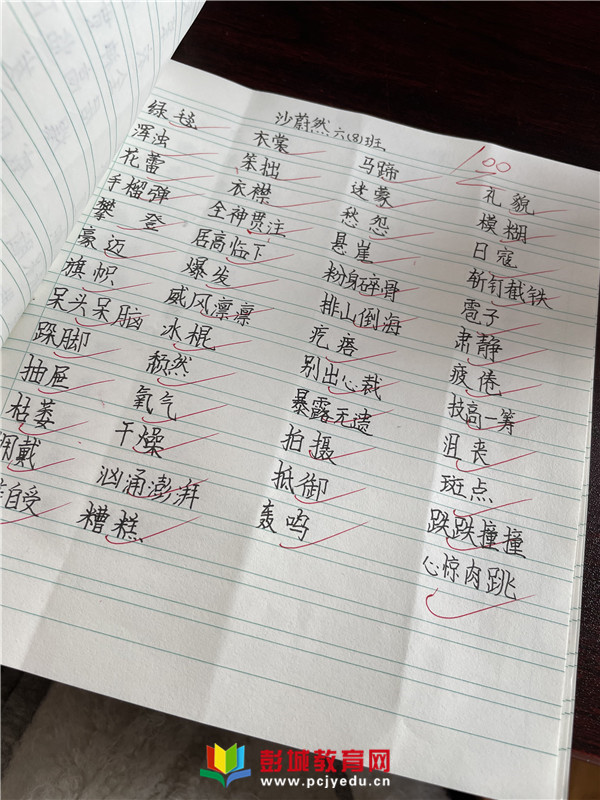 沙蔚然 六(8)班
100
绿毯 衣裳 马蹄 礼貌
浑浊 笨拙 迷蒙 模糊
花蕾 衣襟 愁怨 日寇
手榴弹 全神贯注 悬崖 斩钉截铁
攀登 居高临下 粉身碎骨 雹子
豪迈 爆发 排山倒海 肃静
旗帜 威风凛凛 疙瘩 疲倦
呆头呆脑 冰棍 别出心裁 技高一筹
跺脚 颓然 暴露无遗 沮丧
抽屉 氧气 拍摄 斑点
枯萎 干燥 抵御 跌跌撞撞
戴 汹涌澎湃 轰鸣 心惊肉跳
自受 糟糕
彭城教育网
www.pcjyedu.cn